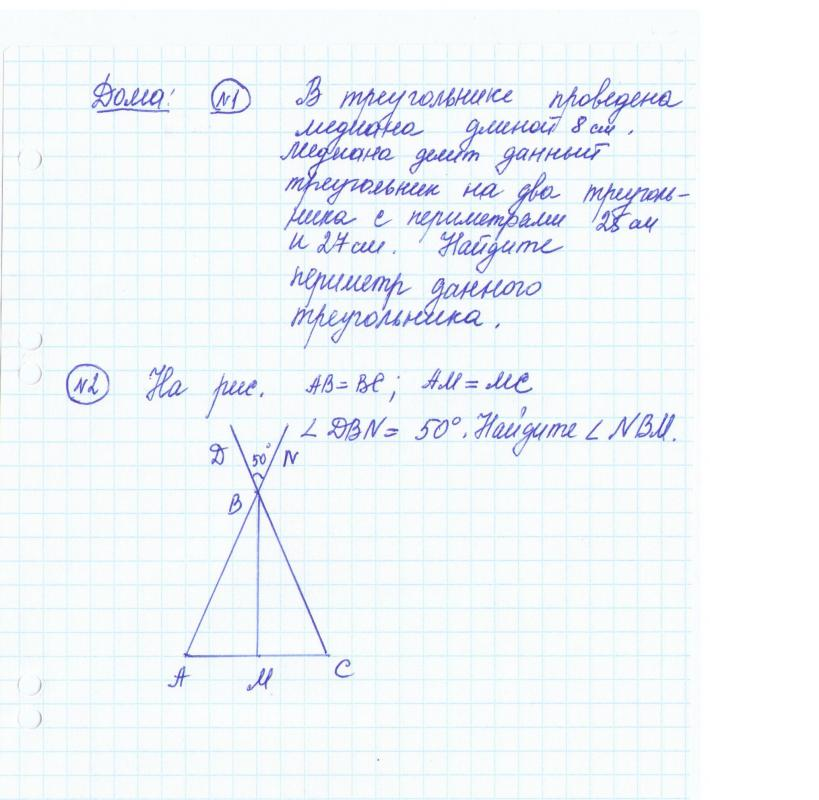 Дома: №1 В треугольнике проведена
медиана длиной 8 см.
Медиана делит данный
треуголник на два треуголь-
ника с периметрами 28 см
и 27 см. Найдите
периметр данного
треугольника.
№2 На рис. AB = BC; AM = MC
∠ DBN = 50°. Найдите ∠ NBM.
D 50° N
B
A M C